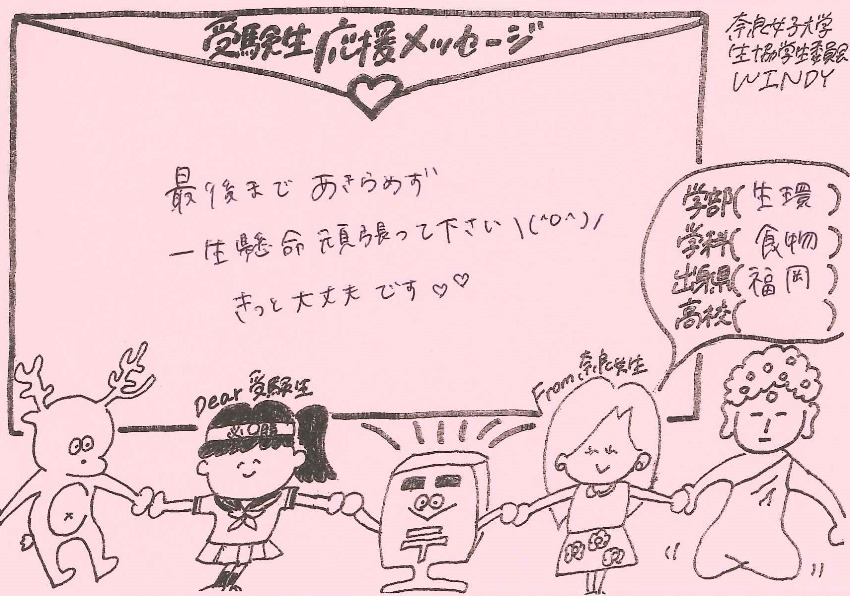 受験生応援メッセージ
奈良女子大学
生協学生委員会
WINDY
最後まで あきらめず
一生懸命 頑張って下さい \(^o^)/
きっと大丈夫です♡♡
学部(生環)
学科(食物)
出身県(福岡)
高校( )
Dear 受験生
From 奈良女生
必勝
〒